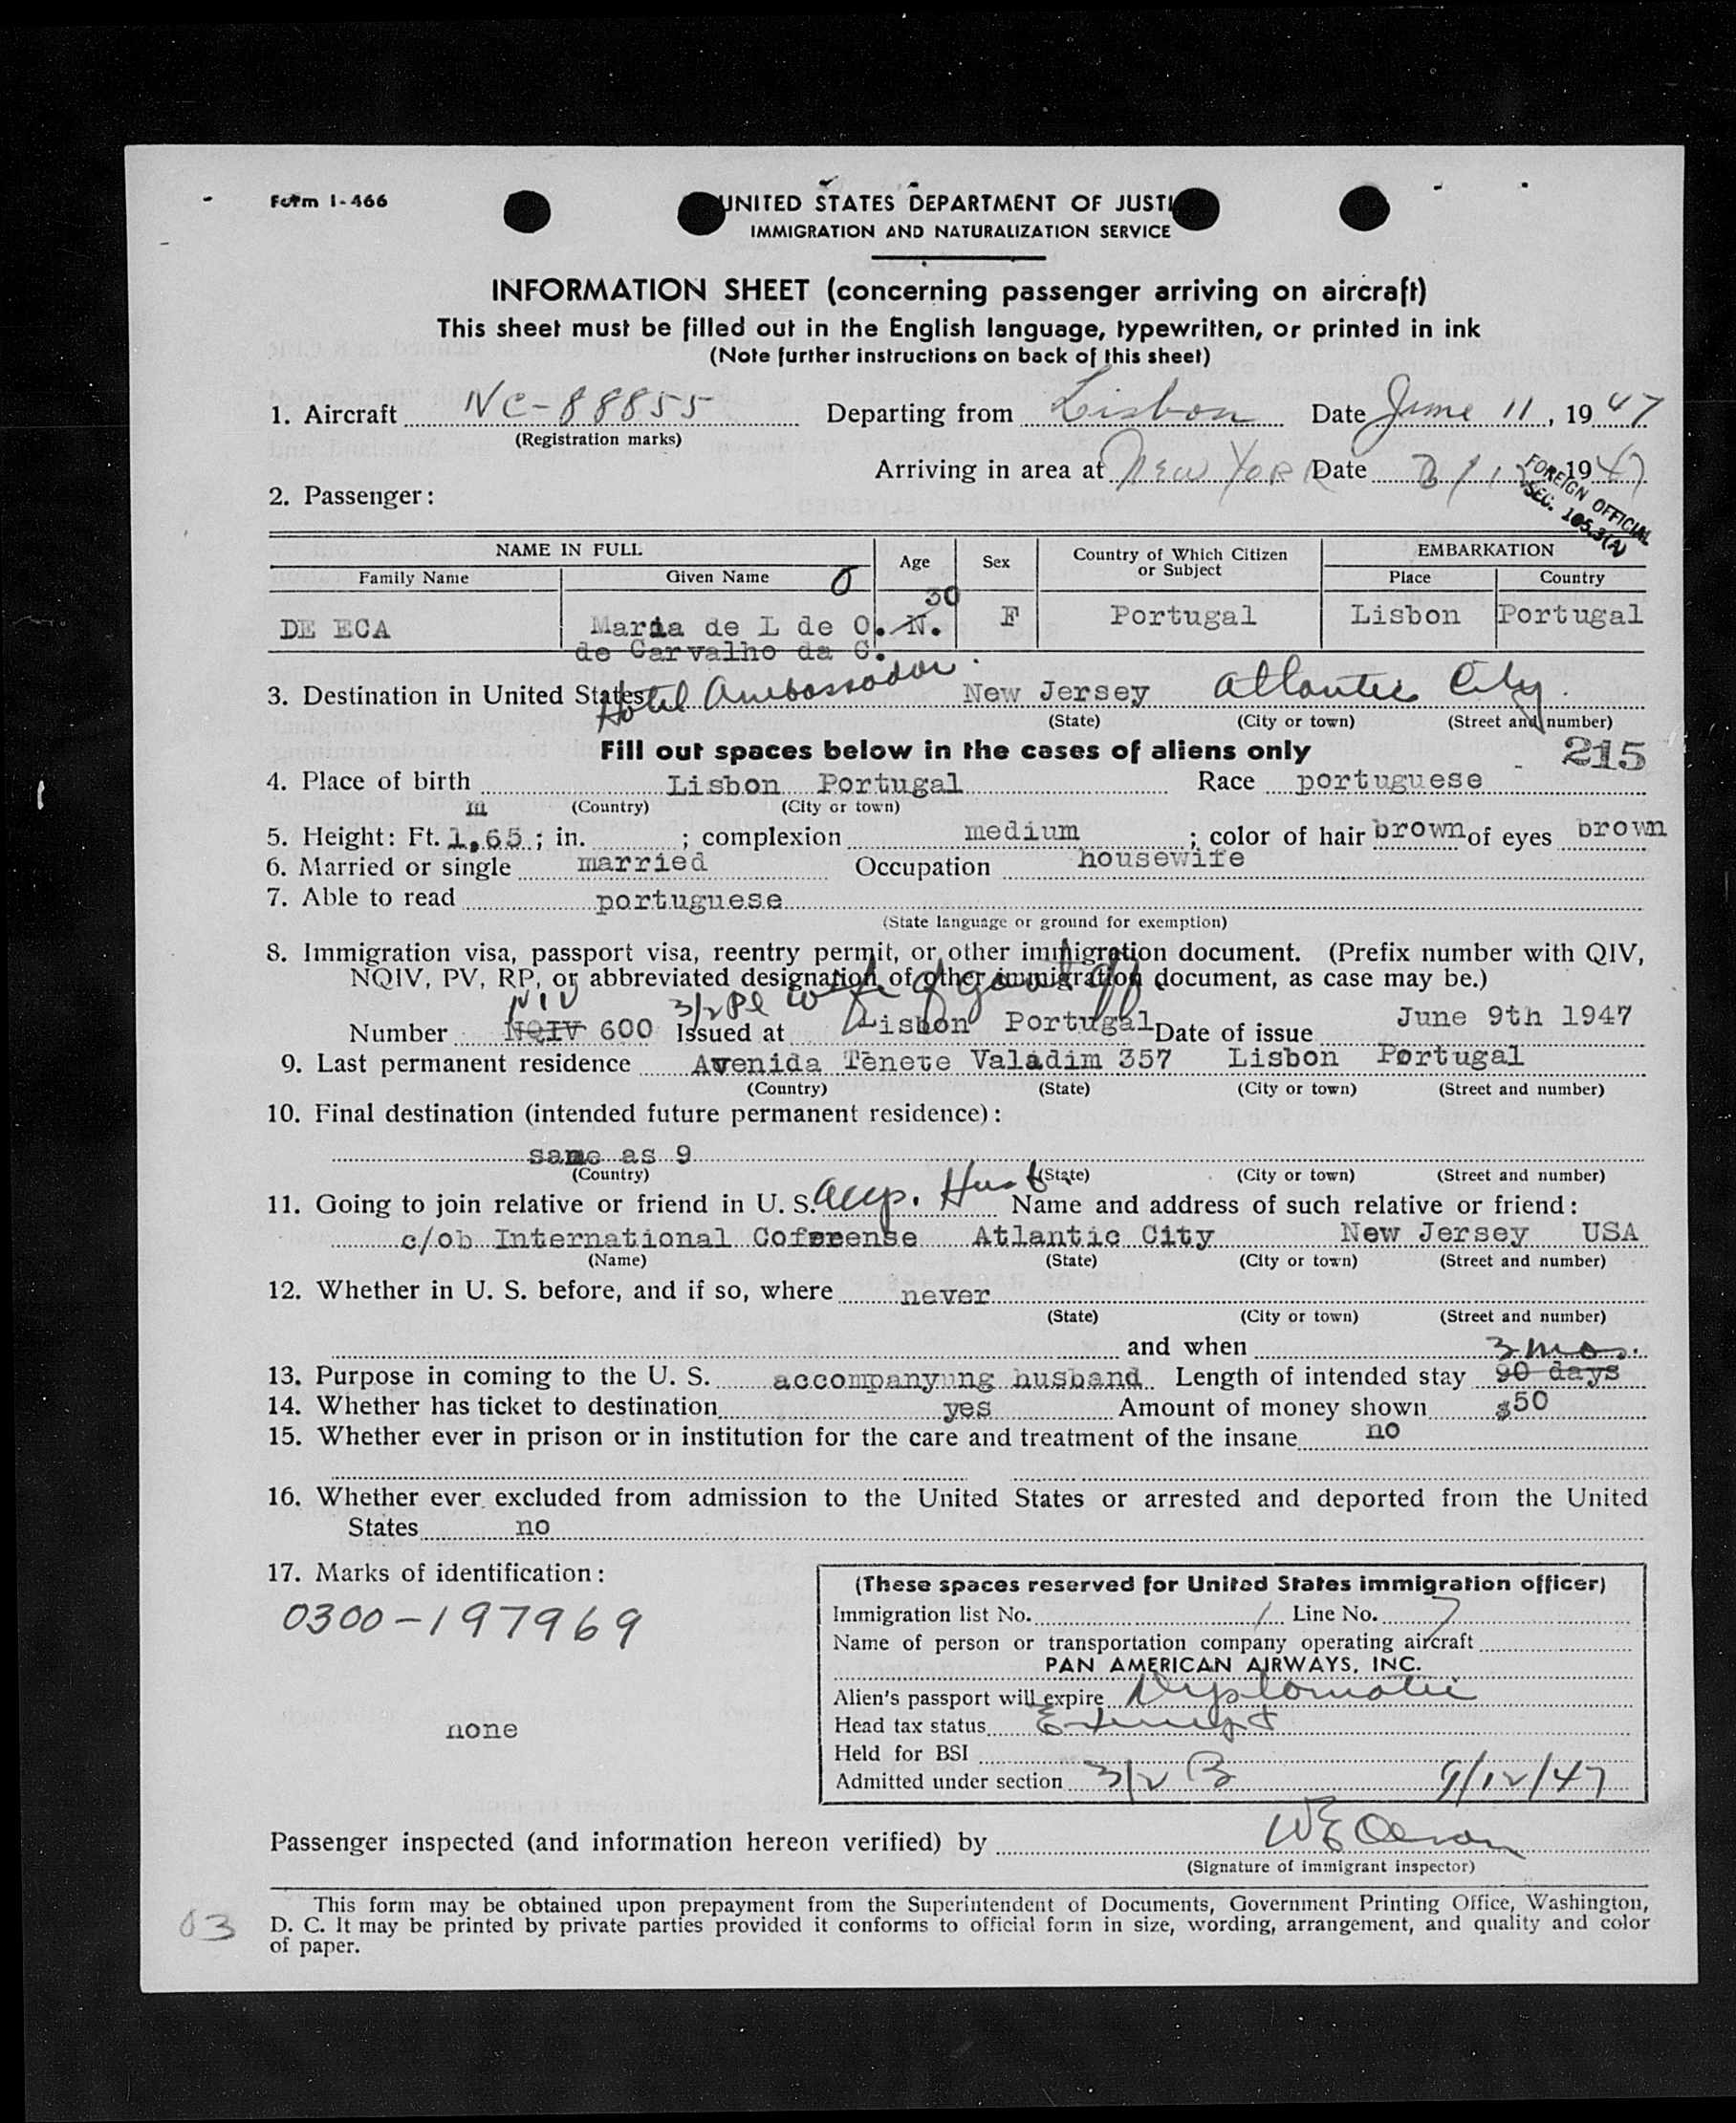 Form I-466
UNITED STATES DEPARTMENT OF JUSTI
IMMIGRATION AND NATURALIZATION SERVICE
INFORMATION SHEET (concerning passenger arriving on aircraft)
This sheet must be filled out in the English language, typewritten, or printed in ink
(Note further instructions on back of this sheet)
1. Aircraft NC-88855 Departing from Lisbon Date June 11, 1947
(Registration marks)
Arriving in area at New York Date 1947
FOREIGN OFFICIAL
SEC. 105.3(A)
2. Passenger:
NAME IN FULL Age Sex Country of Which Citizen or Subject EMBARKATION
Family Name Given Name Place Country
30
DE ECA Maria de L de O. N. F Portugal Lisbon Portugal
de Carvalho da C.
3. Destination in United States Hotel Ambassador New Jersey Atlantic City
(State) (City or town) (Street and number)
Fill out spaces below in the cases of aliens only 215
4. Place of birth Lisbon Portugal Race portuguese
m (Country) (City or town)
5. Height: Ft. 1,65; in. ; complexion medium; color of hair brown of eyes brown
6. Married or single married Occupation housewife
7. Able to read portuguese
(State language or ground for exemption)
8. Immigration visa, passport visa, reentry permit, or other immigration document. (Prefix number with QIV,
NQIV, PV, RP, or abbreviated designation of other immigration document, as case may be.)
NIV 3/2 wife of govt off
Number NQIV 600 Issued at Lisbon Portugal Date of issue June 9th 1947
9. Last permanent residence Avenida Tenete Valadim 357 Lisbon Portugal
(Country) (State) (City or town) (Street and number)
10. Final destination (intended future permanent residence):
same as 9
(Country) (State) (City or town) (Street and number)
11. Going to join relative or friend in U. S. accp. Husb Name and address of such relative or friend:
c/ob International Coference Atlantic City New Jersey USA
(Name) (State) (City or town) (Street and number)
12. Whether in U. S. before, and if so, where never
(State) (City or town) (Street and number)
and when
3 mos.
13. Purpose in coming to the U. S. accompanyung husband Length of intended stay 90 days
14. Whether has ticket to destination yes Amount of money shown $50
15. Whether ever in prison or in institution for the care and treatment of the insane no
16. Whether ever excluded from admission to the United States or arrested and deported from the United
States no
17. Marks of identification:
0300-197969
none
(These spaces reserved for United States immigration officer)
Immigration list No. 1 Line No. 7
Name of person or transportation company operating aircraft
PAN AMERICAN AIRWAYS, INC.
Alien's passport will expire Diplomatic
Head tax status Exempt
Held for BSI
Admitted under section 3/2 B 6/12/47
Passenger inspected (and information hereon verified) by
(Signature of immigrant inspector)
This form may be obtained upon prepayment from the Superintendent of Documents, Government Printing Office, Washington,
D. C. It may be printed by private parties provided it conforms to official form in size, wording, arrangement, and quality and color
of paper.
03